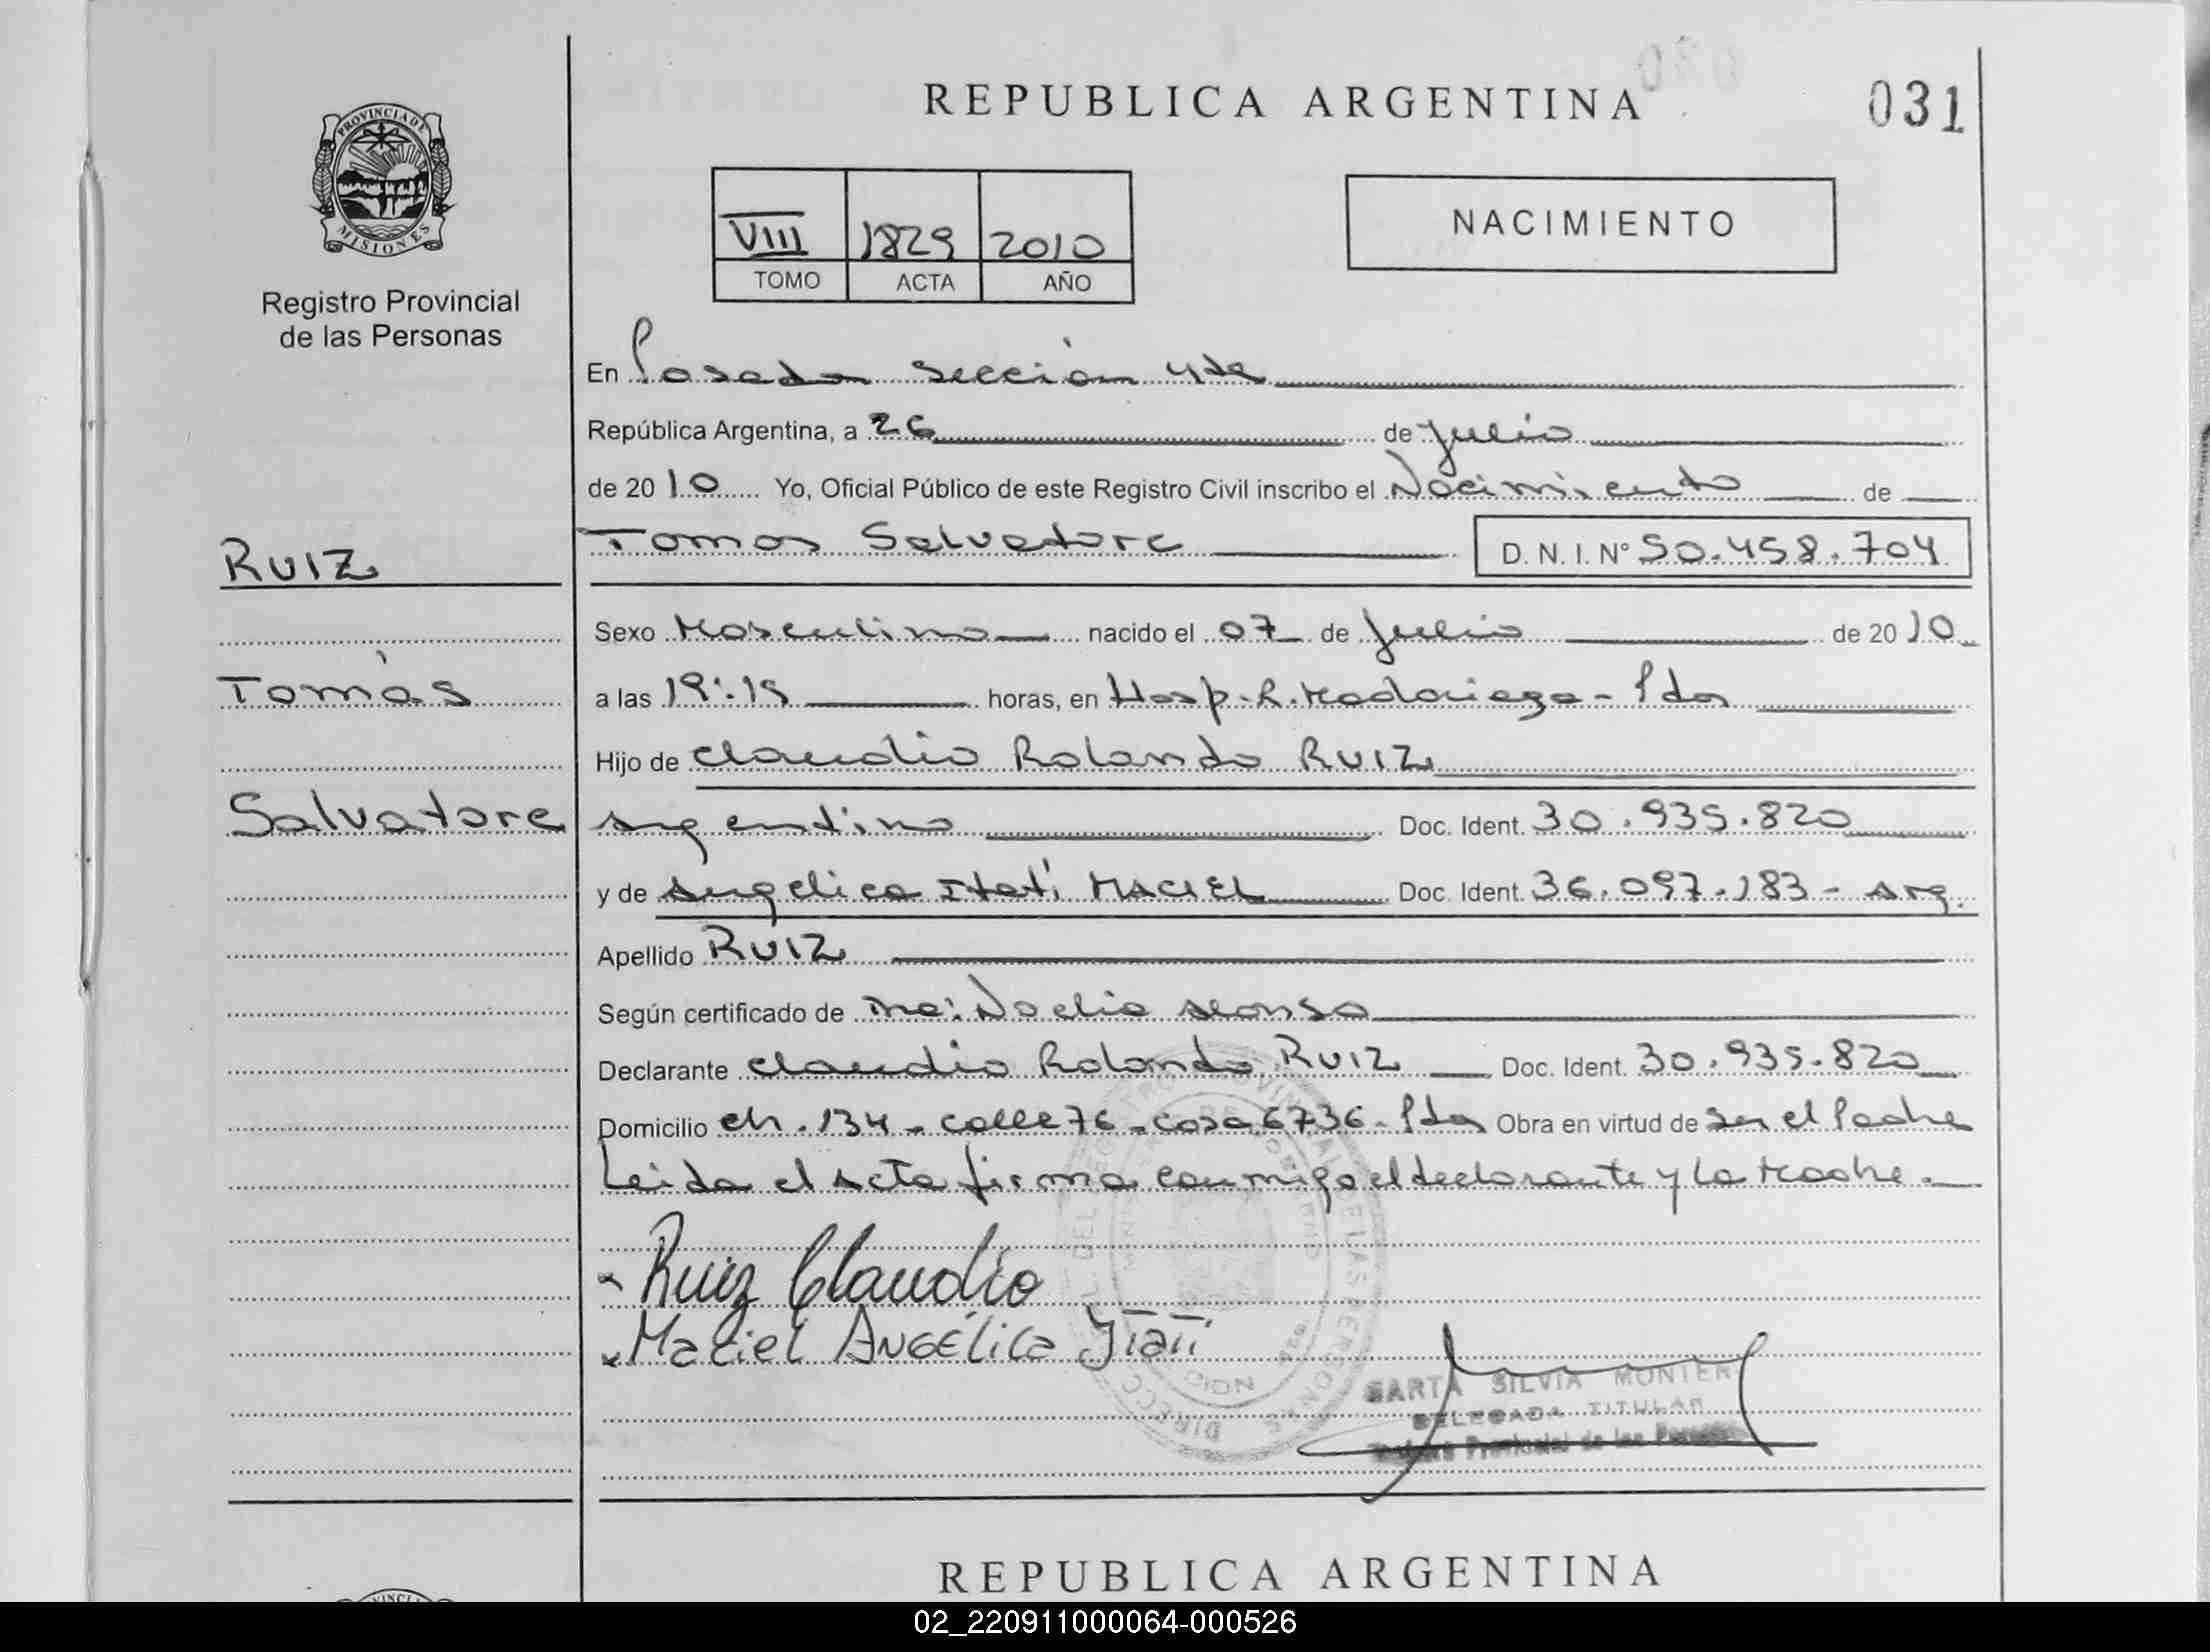 REPUBLICA ARGENTINA
031
PROVINCIA DE
MISIONES
Registro Provincial
de las Personas
VIII 1829 2010
TOMO ACTA AÑO
NACIMIENTO
En Posadas Sección 4ta
República Argentina, a 26 de Julio
de 2010 Yo, Oficial Público de este Registro Civil inscribo el Nacimiento de
RUIZ
Tomás
Salvatore
Tomas Salvatore D. N. I. N° 50.458.704
Sexo Masculino nacido el 07 de Julio de 2010
a las 19:15 horas, en Hosp. R. Madariaga - Pdas
Hijo de Claudio Rolando RUIZ
Argentino Doc. Ident. 30.935.820
y de Angelica Itatí MACIEL Doc. Ident. 36.097.183 - Arg.
Apellido RUIZ
Según certificado de Noelia Alonso
Declarante Claudio Rolando RUIZ Doc. Ident. 30.935.820
Domicilio Ch. 134 - Calle 76 - Casa 6736 - Pdas Obra en virtud de Ser el Padre
Leida el Acta firma conmigo el declarante y la Madre.
Ruiz Claudio
Maciel Angélica Itatí
SILVIA MONTER
DELEGADA TITULAR
Provincial de las
REPUBLICA ARGENTINA
02_220911000064-000526